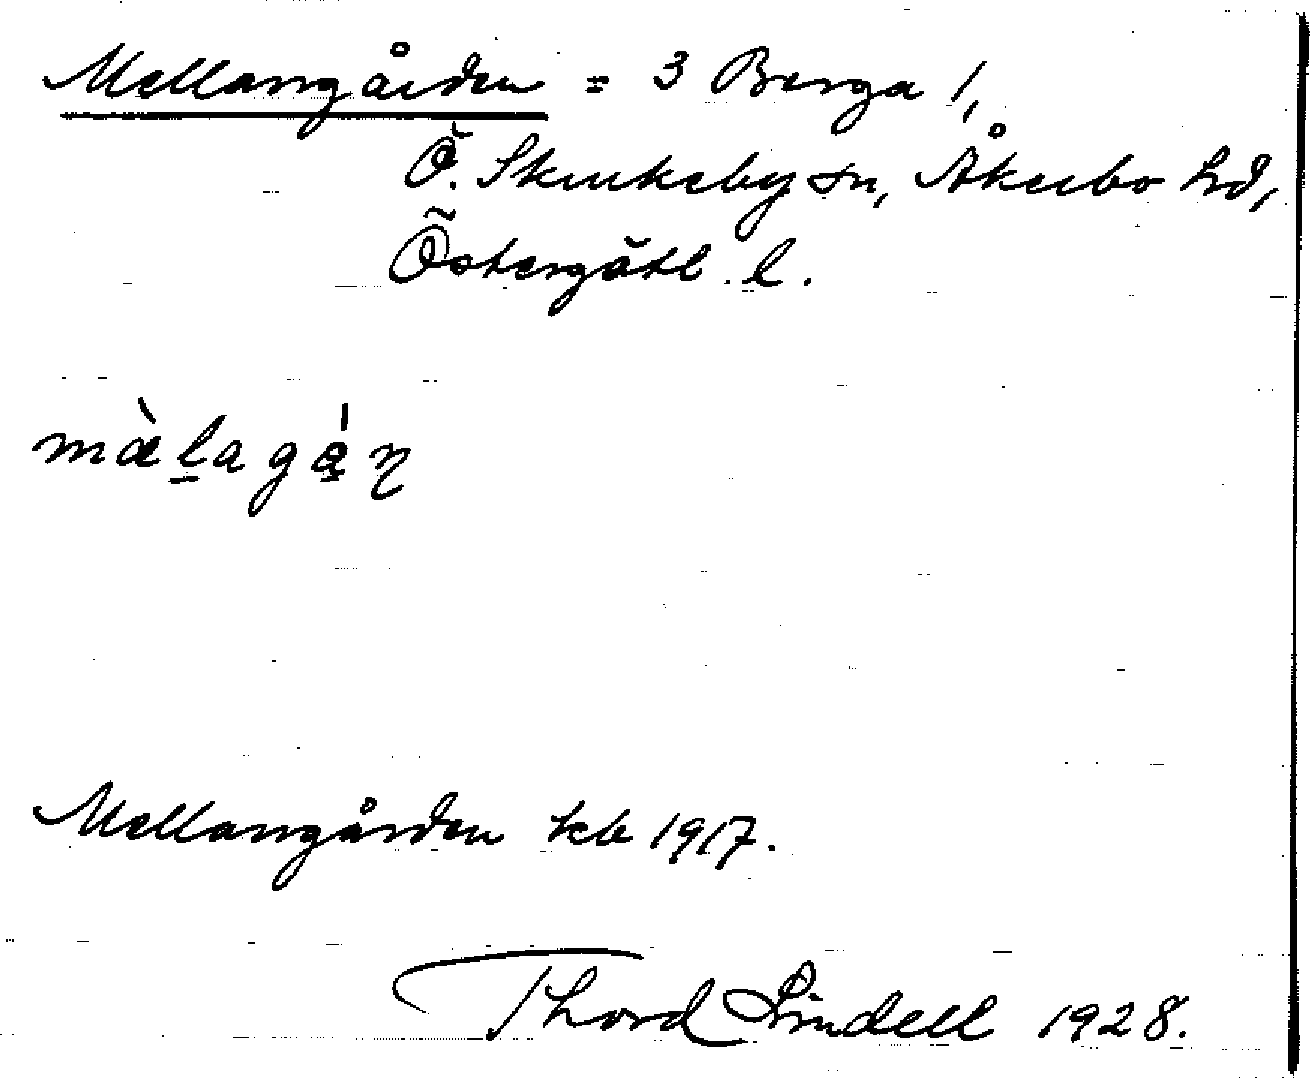 Mellangården = 3 Berga 1,
Ö. Skrukeby sn, Åkerbo hd,
Östergötl. l.
màḻagá̱ɳ
Mellangården kb 1917.
Thord Lindell 1928.